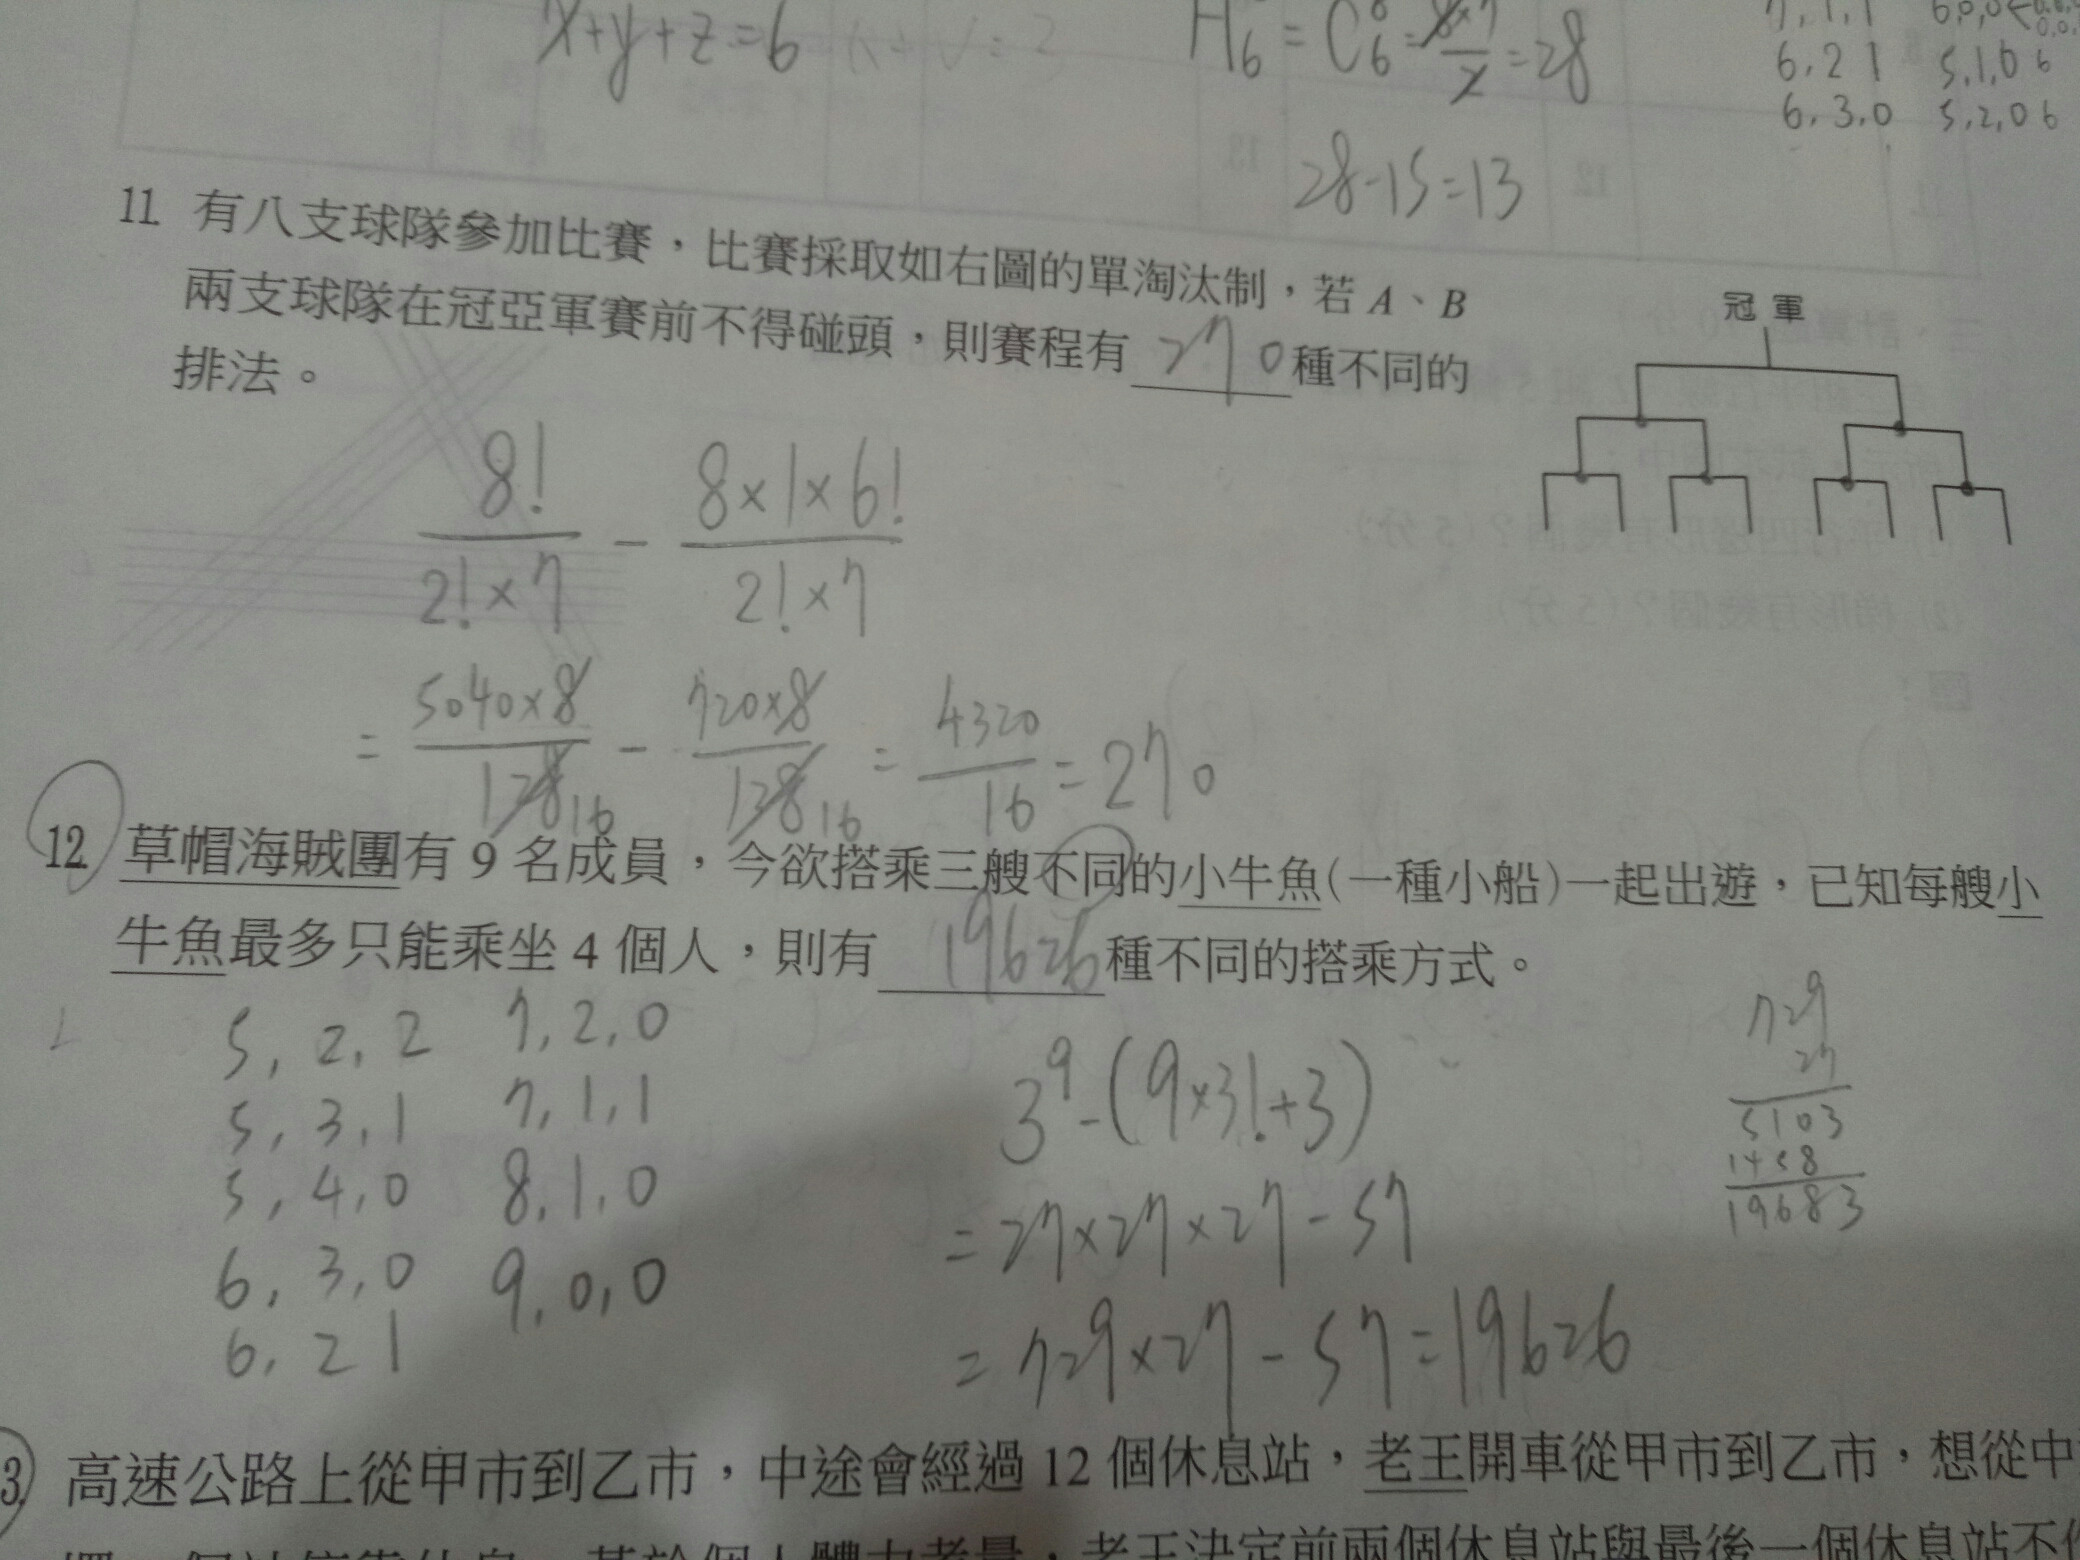 x+y+z=6
H₆ = C⁸₆ = 8×7/2 = 28
7,1,1
6,2 1 5,1,0 6
6,3,0 5,2,0 6
28-15=13
11 有八支球隊參加比賽，比賽採取如右圖的單淘汰制，若 A、B
兩支球隊在冠亞軍賽前不得碰頭，則賽程有 270 種不同的
排法。
冠軍
8!/2!×7 - 8×1×6!/2!×7
= 5040×8/128 16 - 720×8/128 16 = 4320/16 = 270
12 草帽海賊團有 9 名成員，今欲搭乘三艘不同的小牛魚(一種小船)一起出遊，已知每艘小
牛魚最多只能乘坐 4 個人，則有 19626 種不同的搭乘方式。
5, 2, 2 7, 2, 0
5, 3, 1 7, 1, 1
5, 4, 0 8, 1, 0
6, 3, 0 9, 0, 0
6, 2 1
3⁹-(9×3!+3)
=27×27×27-57
=729×27-57=19626
729
27
5103
1458
19683
3 高速公路上從甲市到乙市，中途會經過 12 個休息站，老王開車從甲市到乙市，想從中
老王決定前兩個休息站與最後一個休息站不